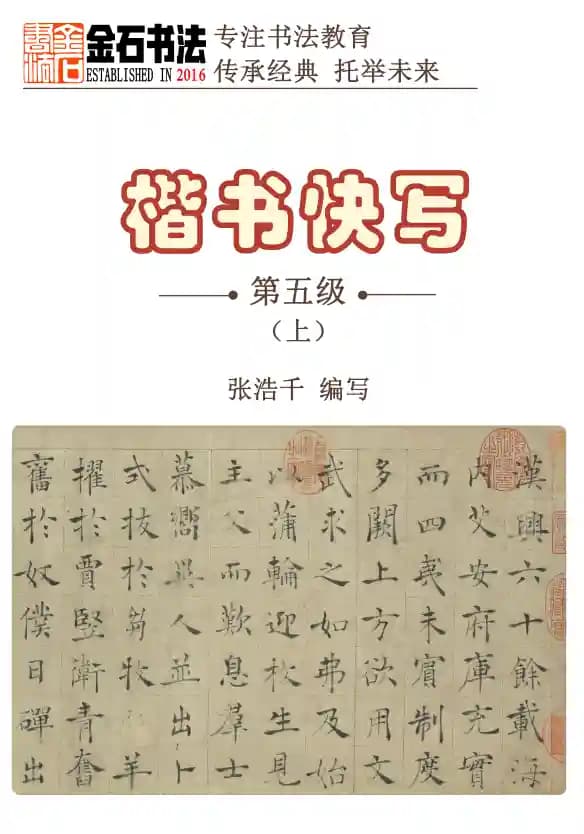 金石书法
ESTABLISHED IN 2016
专注书法教育
传承经典 托举未来
楷书快写
第五级
（上）
张浩千 编写
漢興六十餘載海
内艾安府庫充實
而四夷未賓制度
多闕上方欲用文
武求之如弗及始
以蒲輪迎枚生見
主父而歎息羣士
慕嚮異人並出卜
式拔於芻牧 羊
擢於賈竪衛青奮
舊於奴僕日磾出